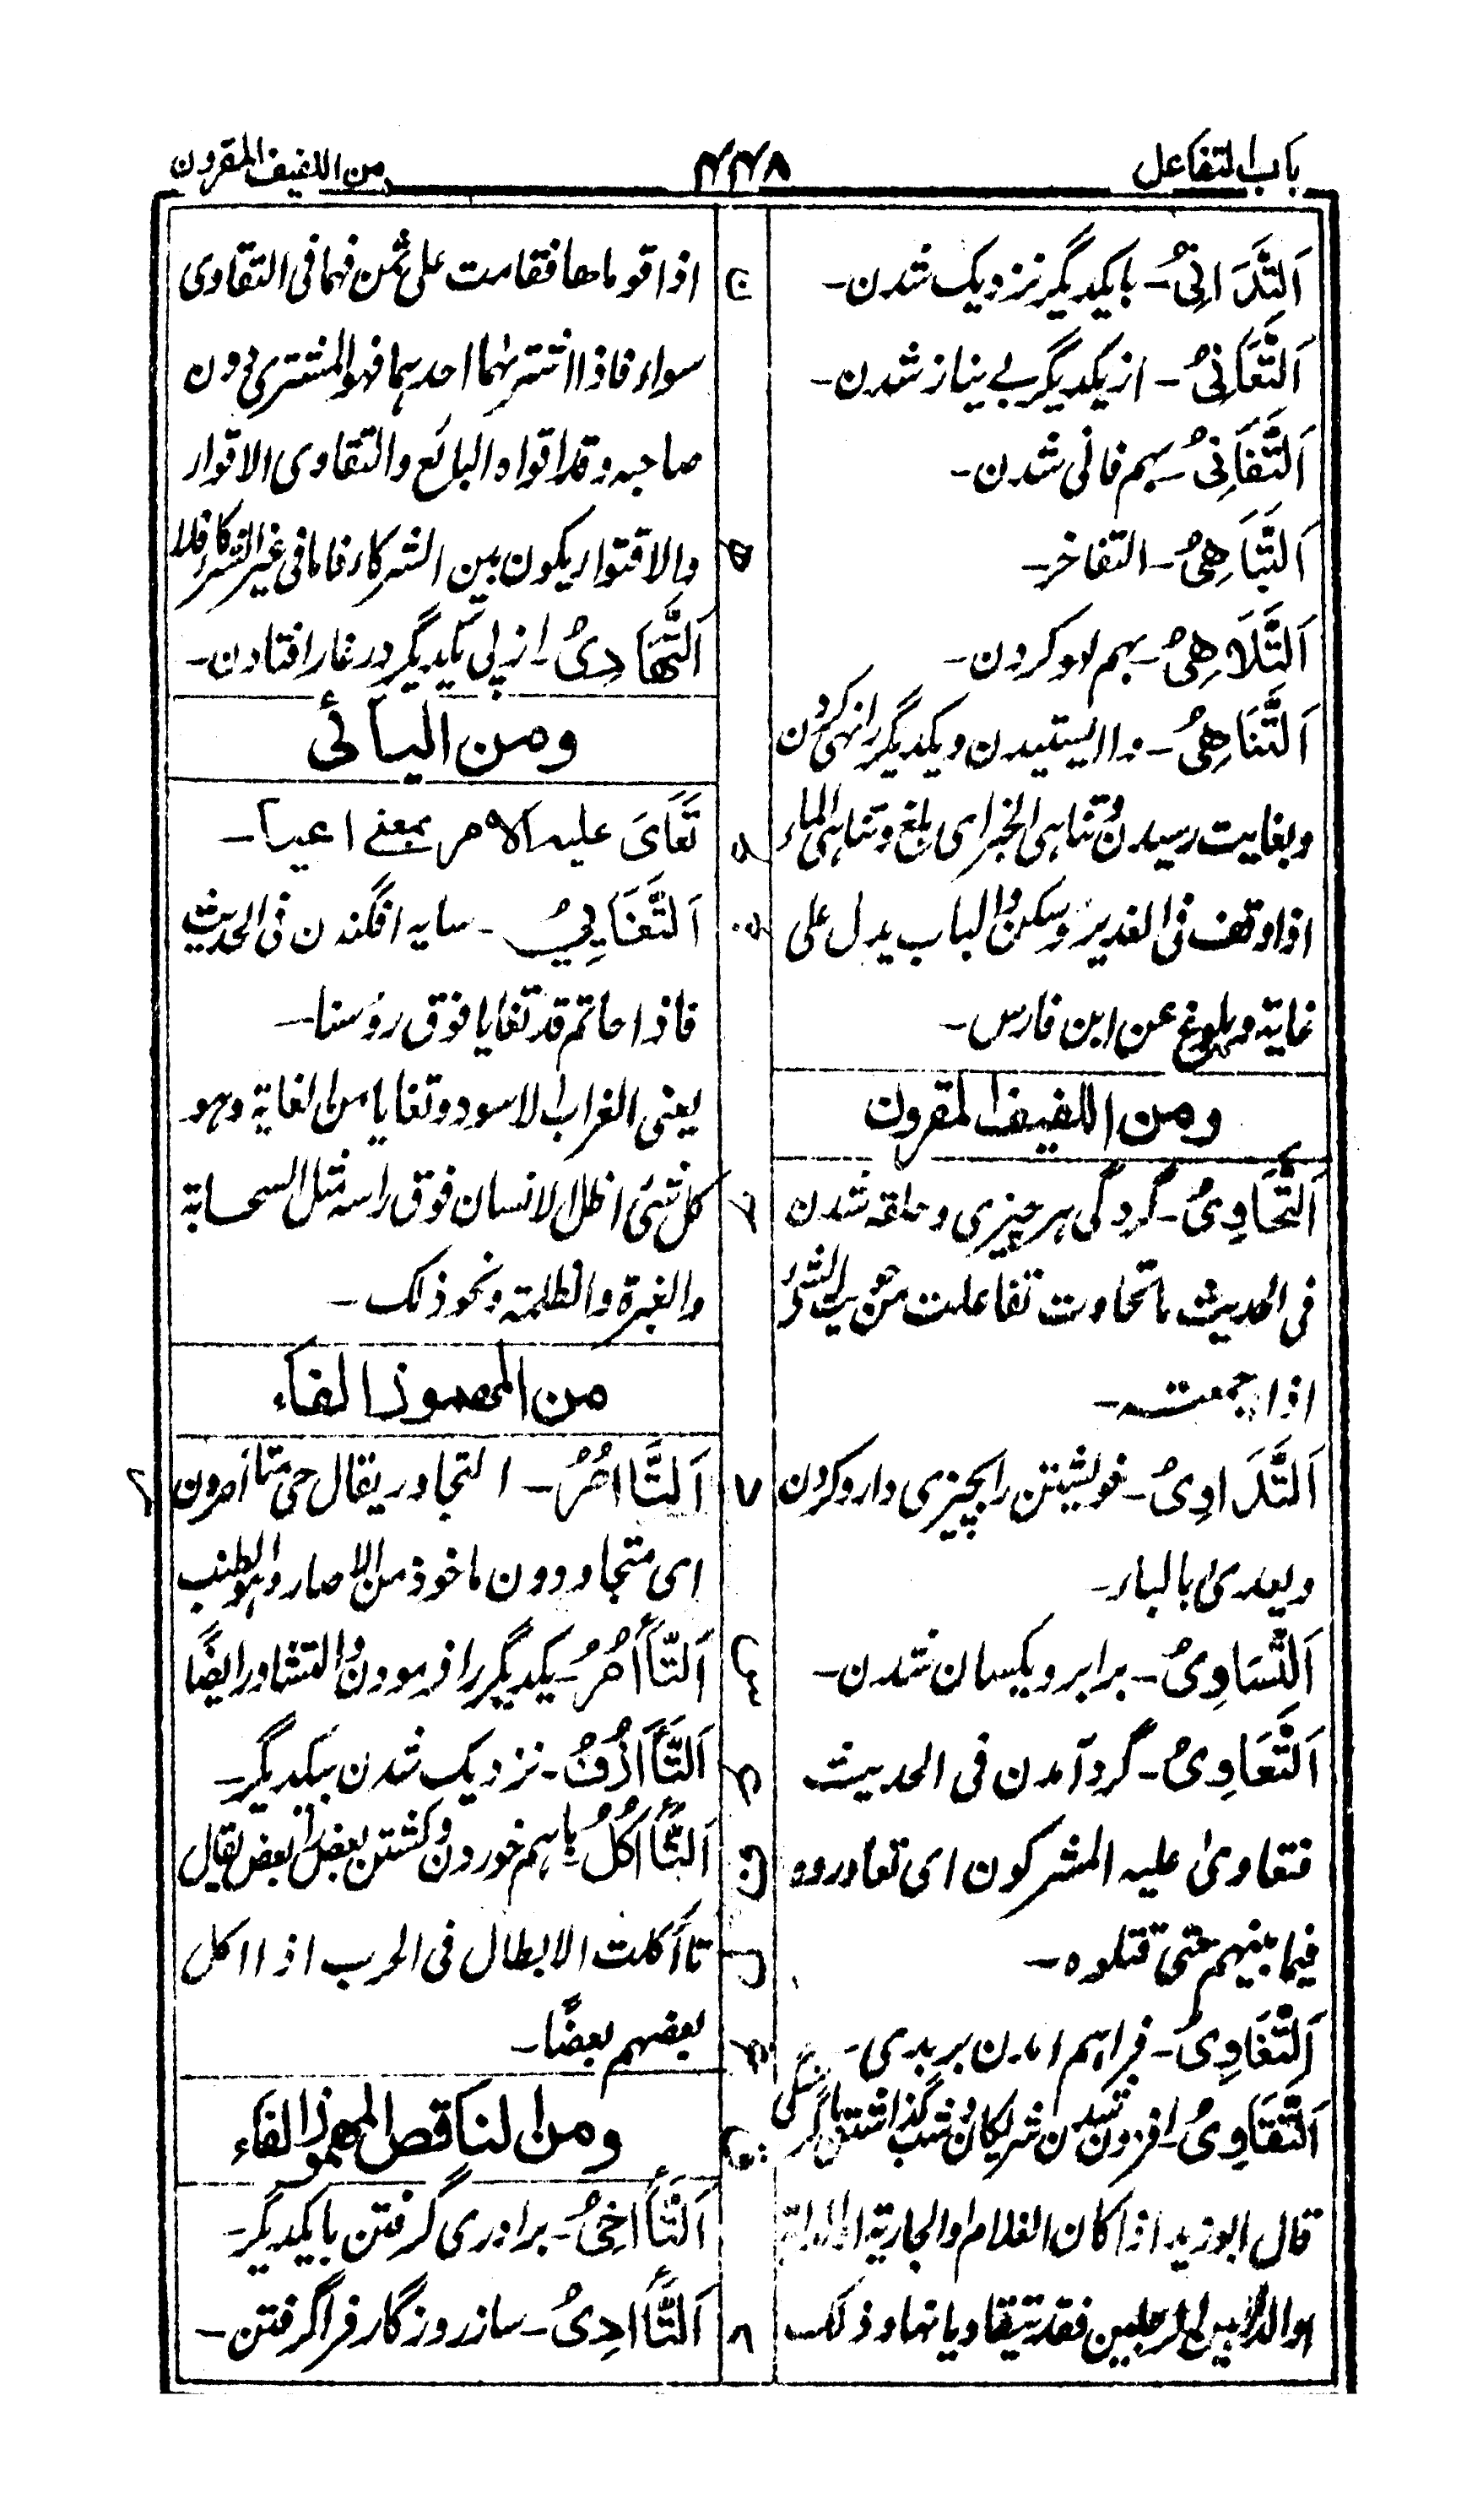 باب التفاعل
۴۴۸
من اللفيف المقرون
اَلتَّدَانِیُ۔ بایکدیگر نزدیک شدن۔
اَلتَّغَانِیُ۔ از یکدیگر بے نیاز شدن۔
اَلتَّفَانِیُ۔ بہم فانی شدن۔
اَلتَّبَاهِیُ۔ التفاخر۔
اَلتَّلَاهِیُ۔ بہم لہو کردن۔
اَلتَّنَاهِیُ۔ وا ایستیدن و یکدیگر را نہی کردن
و بغایت رسیدن و تناہی الخبر ای بلغ و تناہی الماء
اذا وقف فی الغدیر و سکن و الباب یدل علی
غایة و بلوغ عن ابن فارس۔
ومن اللفيف المقرون
اَلتَّحَاوِیُ۔ گرد گی ہر چیزی و حلقہ شدن
فی الحدیث ما تحاوت تفاعلت من حویت الشئ
اذا جمعتہ۔
اَلتَّدَاوِیُ۔ خویشتن را بچیزی دارو کردن
و یعدیٰ بالباء۔
اَلتَّسَاوِیُ۔ برابر و یکسان شدن۔
اَلتَّعَاوِیُ۔ گرد آمدن فی الحدیث
فتعاویٰ علیہ المشرکون ای تعاوروہ
فیما بینہم حتی قتلوہ۔
اَلتَّغَاوِیُ۔ فراہم امدن بر بدی۔
اَلتَّقَاوِیُ۔ افزودن شریکان و شب گذاشتن
قال ابو زید اذا کان الغلام او الجاریة او الدابة
او الدار بین الرجلین فقد یتقاویانہا و ذلک
اذا قوماها فقامت علی ثمن فہما فی التقاوی
سواء فاذا اشتریٰہا احدہما فہو المشتری دون
صاحبہ و قد اقواہ البائع والتقاوی الاقواء
والاقتواء یکون بین الشرکاء فاما فی غیر الشرکاء فلا
اَلتَّهَاوِیُ۔ از پی یکدیگر در غار افتادن۔
ومن اليائی
تَعَایَ علیہ الامر بمعنے اعیا۔
اَلتَّغَايِیُ۔ سایہ افگندن فی الحدیث
فاذا حاتم قد تغایا فوق رؤسنا۔
یعنی الغراب الاسود و تغایا من الغایة وہو
کل شئ اظل الانسان فوق راسہ مثل السحابة
والغبرة والظلمة ونحو ذلک۔
من المهموز الفاء
اَلتَّاٰصُرُ۔ التجاور یقال حی متاٰصرون
ای متجاوردون ماخوذ من الاصار وہو الطنب
اَلتَّأَامُرُ۔ یکدیگر را فرمودن و التشاور ایضًا
اَلتَّأَازُفُ۔ نزدیک شدن بیکدیگر۔
اَلتَّأَاكُلُ۔ باہم خوردن و کشتن بعض از بعض یقال
تاٰکلت الابطال فی الحرب اذا اکل
بعضہم بعضًا۔
ومن الناقص المهموز الفاء
اَلتَّأَاخِیُ۔ برادری گرفتن بایکدیگر۔
اَلتَّأَادِیُ۔ ساز روزگار فراگرفتن۔